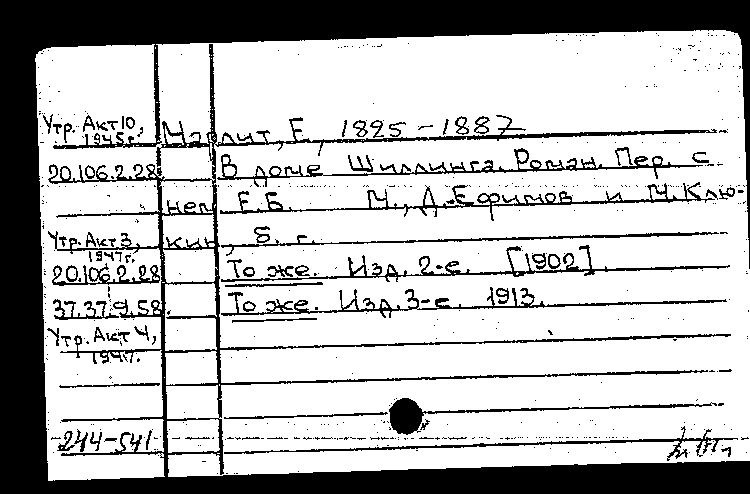 Утр. Акт 10,
1945г. Марлит, Е., 1825-1887
20.106.2.28 В доме Шиллинга. Роман. Пер. с
нем. Е.Б. М., Д.Ефимов и М.Клю-
Утр. Акт 3, кин, б. г.
1947г.
20.106.2.28 То же. Изд. 2-е. [1902].
37.37.9.58. То же. Изд. 3-е. 1913.
Утр. Акт 4,
1947г.
244-541